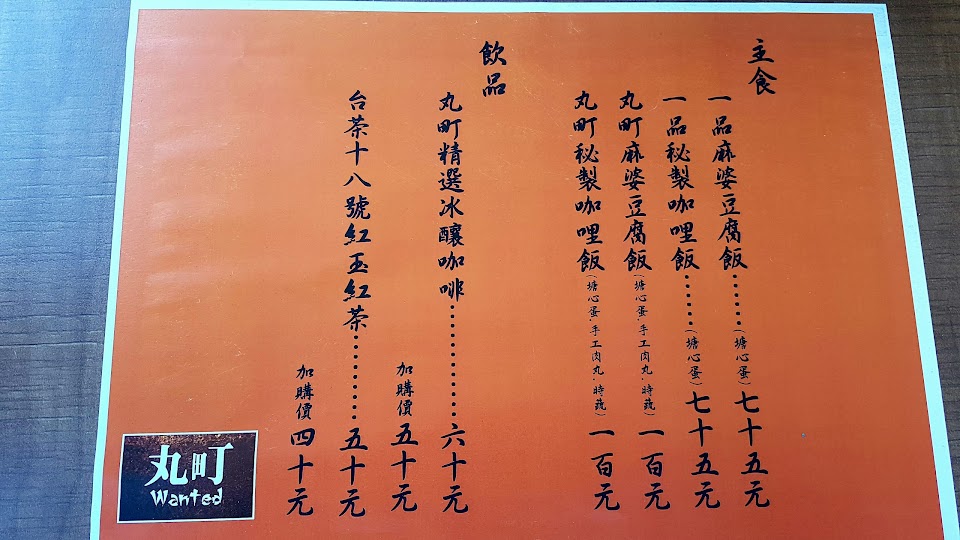 主食
一品麻婆豆腐飯......(塘心蛋)七十五元
一品秘製咖哩飯......(塘心蛋)七十五元
丸町麻婆豆腐飯(塘心蛋.手工肉丸.時蔬)一百元
丸町秘製咖哩飯(塘心蛋.手工肉丸.時蔬)一百元
飲品
丸町精選冰釀咖啡............六十元
加購價五十元
台茶十八號紅玉紅茶.........五十元
加購價四十元
丸町
Wanted